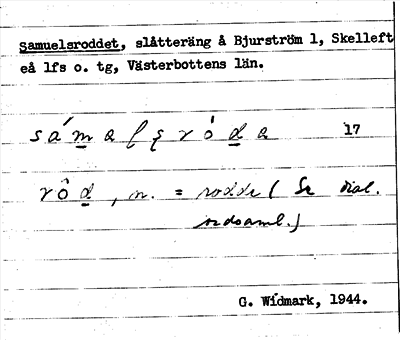 Samuelsroddet, slåtteräng å Bjurström 1, Skelleft
eå lfs o. tg, Västerbottens län.
sá m a l s̨ r ó d a 17
r ô d, n. = rodde ( Se dial.
ordsaml.)
G. Widmark, 1944.